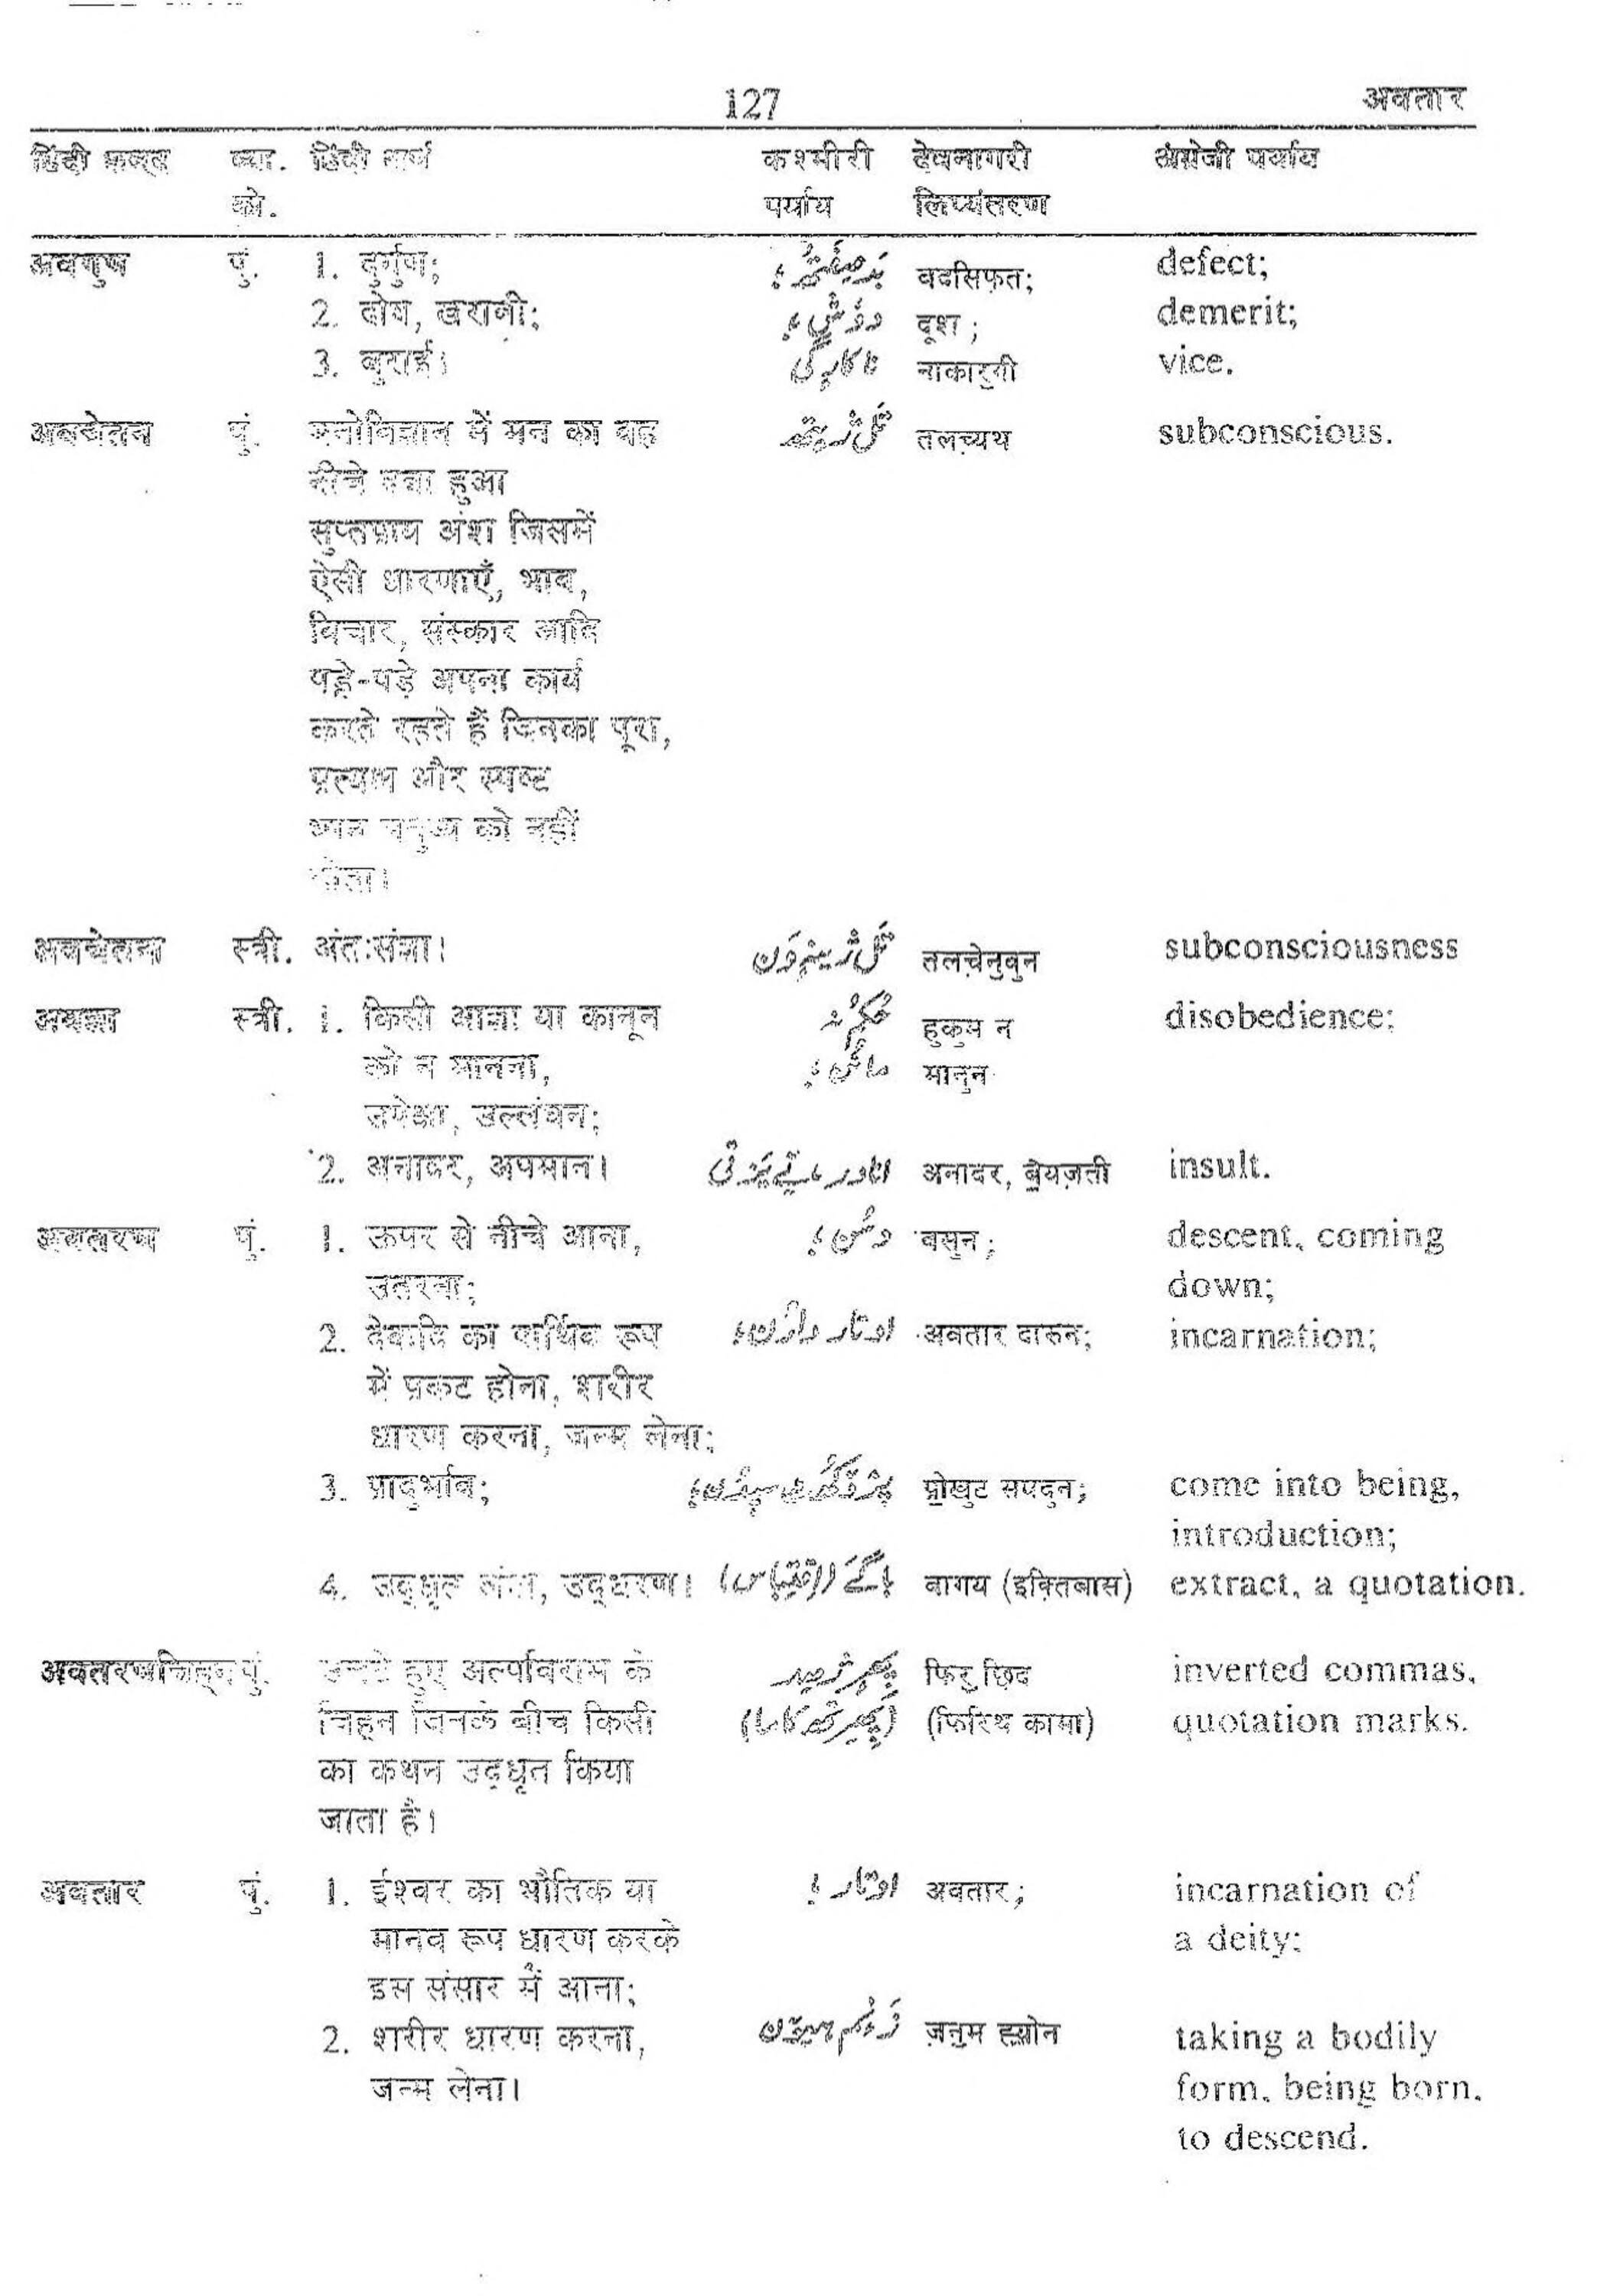 127 अवतार
हिंदी शब्द व्या. हिंदी अर्थ कश्मीरी देवनागरी अंग्रेजी पर्याय
को. पर्याय लिप्यंतरण
अवगुण पुं. 1. दुर्गुण; بَد صِفَتھ؛ बदसिफ़त; defect;
2. दोष, खराबी; دوٗش؛ दूश; demerit;
3. बुराई। ناکارٕگی नाकारॖगी vice.
अवचेतन पुं. मनोविज्ञान में मन का वह तलच़्यथ subconscious.
नीचे दबा हुआ
सुप्तप्राय अंश जिसमें
ऐसी धारणाएँ, भाव,
विचार, संस्कार आदि
पड़े-पड़े अपना कार्य
करते रहते हैं जिनका पूरा,
प्रत्यक्ष और स्पष्ट
मनुष्य को नहीं
होता।
अवचेतना स्त्री. अंतःसंज्ञा। तलच़ेनॖवुन subconsciousness
अवज्ञा स्त्री. 1. किसी आज्ञा या कानून حُکُم نہٕ हुकुम न disobedience;
को न मानना, مانُن؛ मानुन
उपेक्षा, उल्लंघन;
2. अनादर, अपमान। अनादर, बॆयज़ती insult.
अवतरण पुं. 1. ऊपर से नीचे आना, وسُن؛ वसुन; descent, coming
उतरना; down;
2. देवादि का पार्थिव रूप اوتار دارُن؛ अवतार दारुन; incarnation;
में प्रकट होना, शरीर
धारण करना, जन्म लेना;
3. प्रादुर्भाव; प्रॊखुट सपदुन; come into being,
introduction;
4. उद्धृत अंश, उद्धरण। (اقتباس) वागय (इक़्तिबास) extract, a quotation.
अवतरणचिह्न पुं. उलटे हुए अल्पविराम के फिरॖ छ़िद inverted commas,
चिह्न जिनके बीच किसी (پھِرِتھ کاما) (फिरिथ कामा) quotation marks.
का कथन उद्धृत किया
जाता है।
अवतार पुं. 1. ईश्वर का भौतिक या اوتار؛ अवतार; incarnation of
मानव रूप धारण करके a deity;
इस संसार में आना;
2. शरीर धारण करना, زَنُم ہیوٚن ज़नुम ह्यॊन taking a bodily
जन्म लेना। form, being born,
to descend.